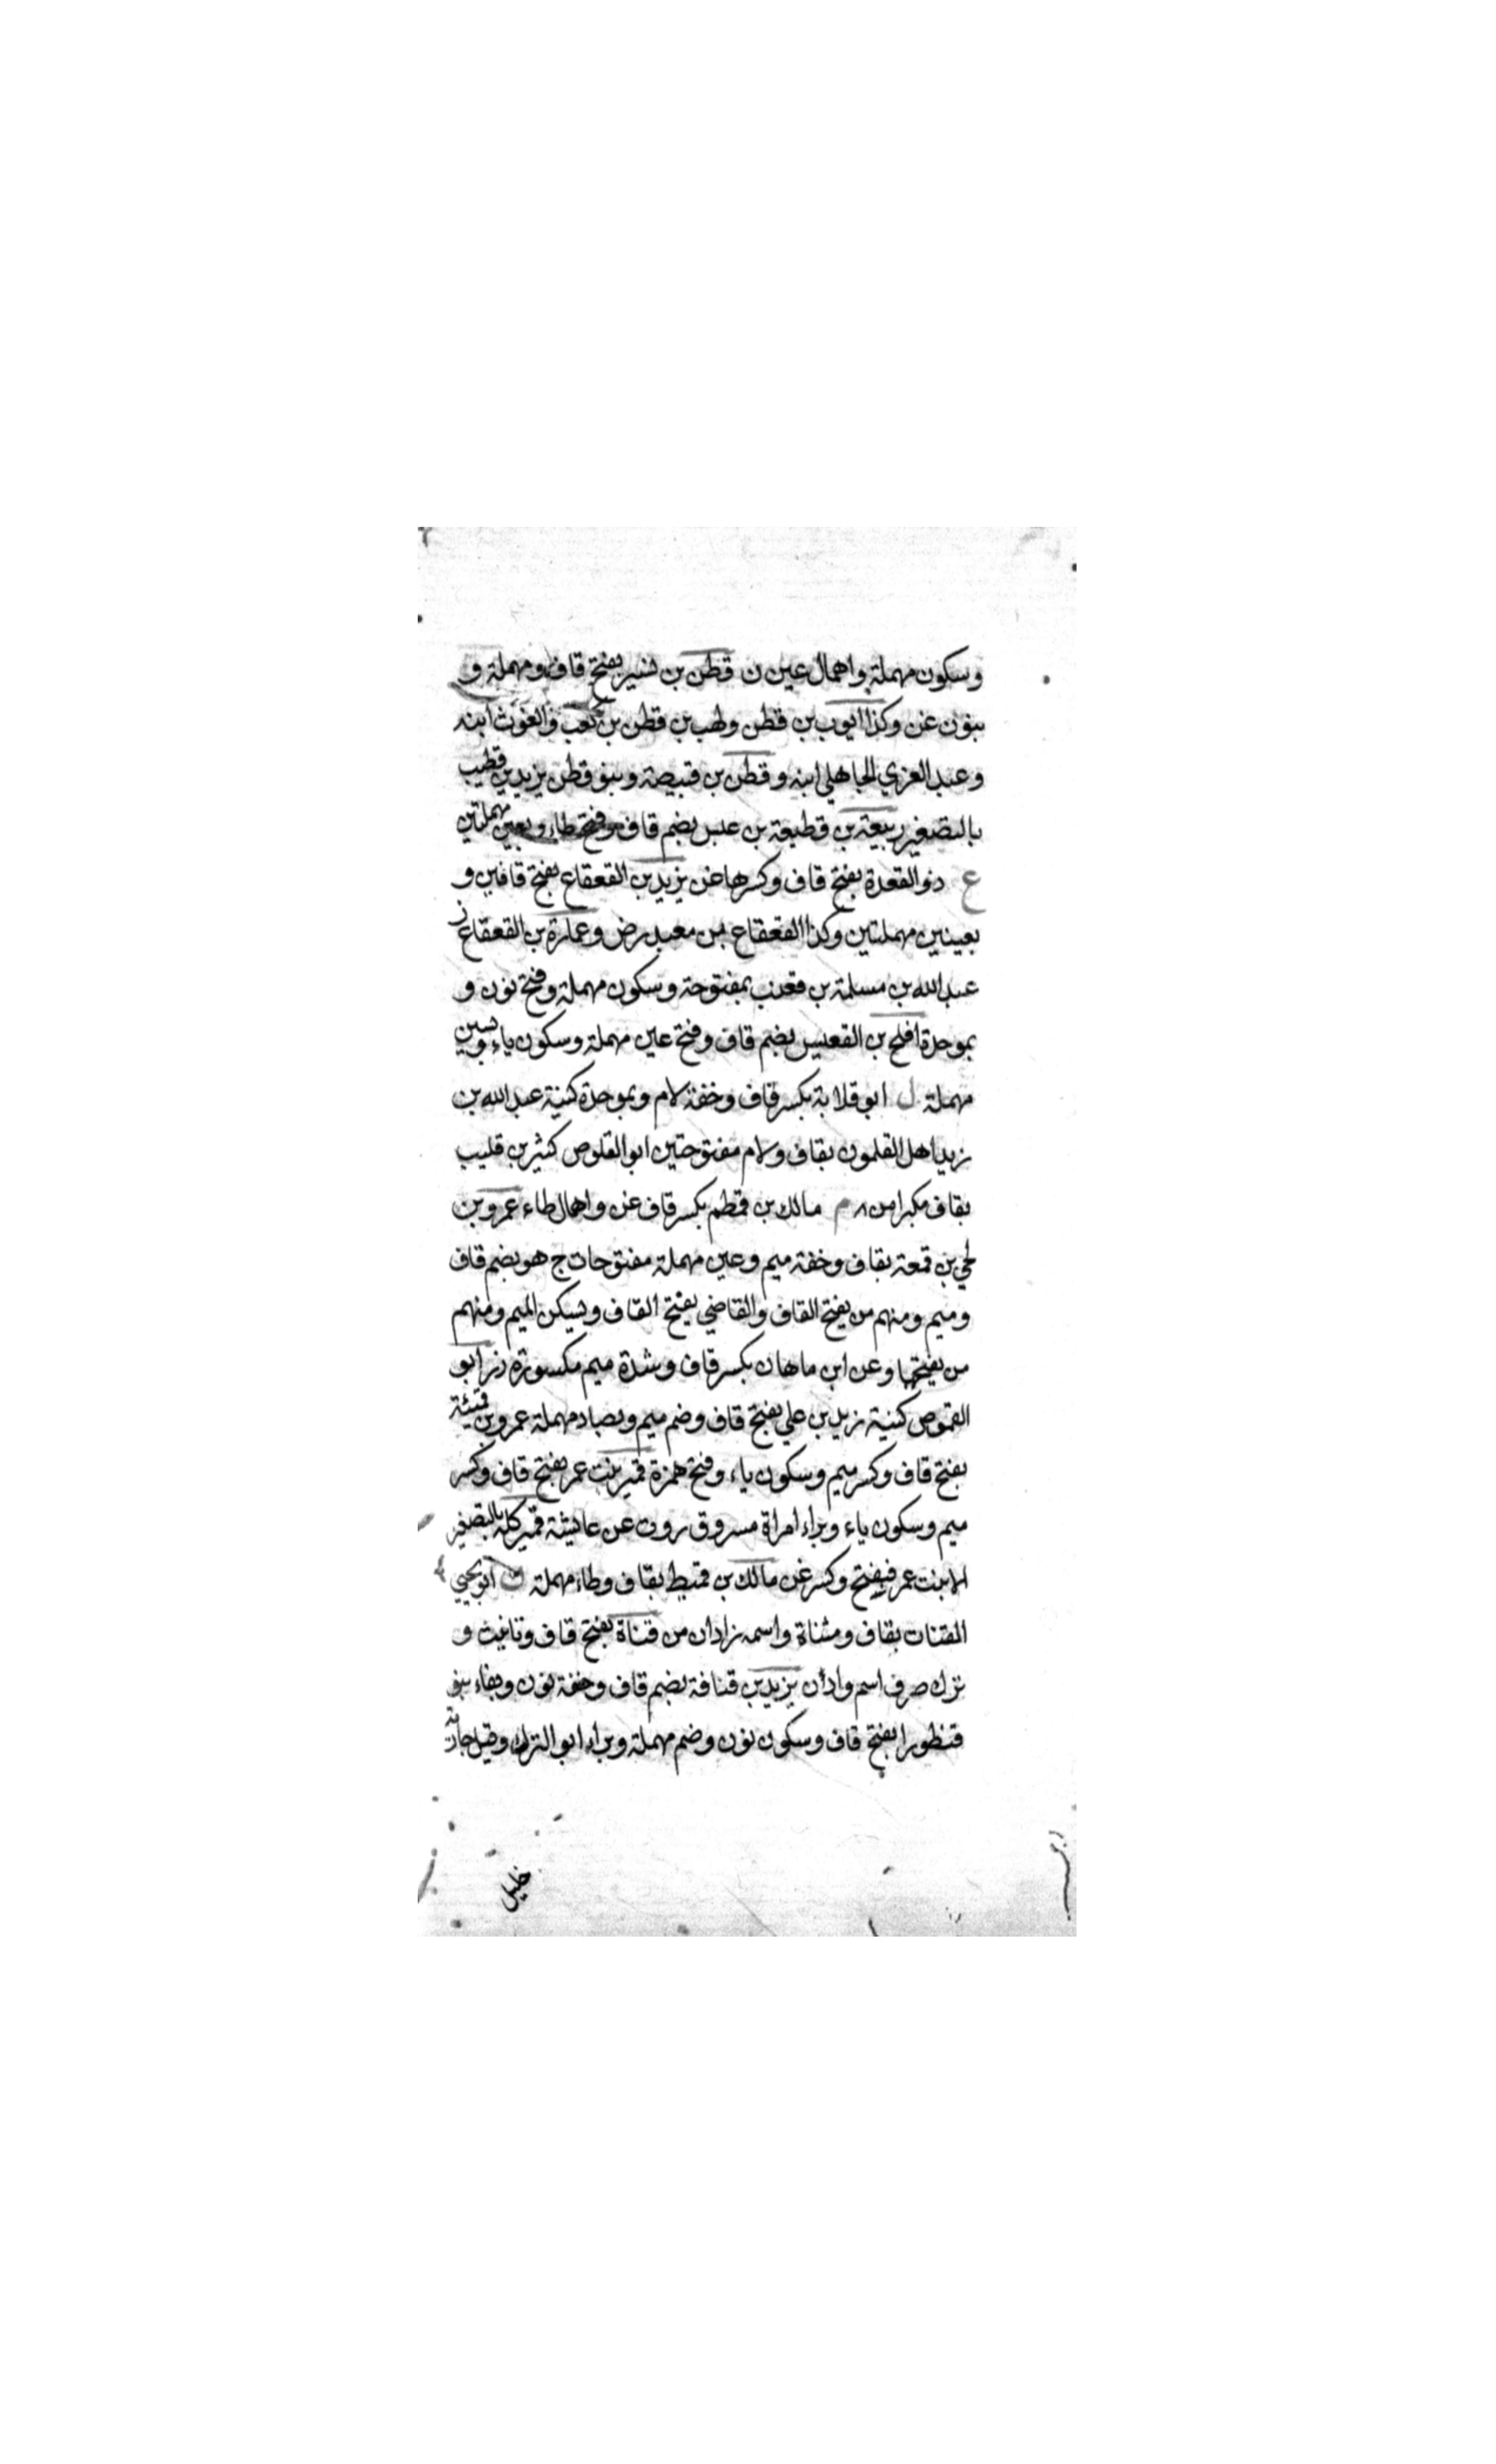 وسكون مهملة واهمال عين ن قطن بن نسير بفتح قاف ومهملة و
بنون غن وكذا ايوب بن قطن ولهب بن قطن بن كعب والغوث ابنه
وعبد العزي الجاهلي ابنه وقطن بن قبيصة وبنو قطن يزيد بن قطيب
بالتصغير ربيعة بن قطيعة بن عبس بضم قاف وفتح طاء وبعين مهملتين
ع ذو القعدة بفتح قاف وكسرها غن يزيد بن القعقاع بفتح قافين و
بعينين مهملتين وكذا القعقاع بن معبد رض وعمارة بن القعقاع ز
عبد الله بن مسلمة بن قعنب بمفتوحة وسكون مهملة وفتح نون و
بموحدة افلح بن القعيس بضم قاف وفتح عين مهملة وسكون ياء وبسين
مهملة ل ابو قلابة بكسر قاف وخفة لام وبموحدة كنية عبد الله بن
زيد اهل القلمون بقاف ولام مفتوحتين ابو القلوص كثير بن قليب
بقاف مكبرا من م مالك بن قطم بكسر قاف غن واهمال طاء عمرو بن
لحي بن قمعة بقاف وخفة ميم وعين مهملة مفتوحات ج هو بضم قاف
وميم ومنهم من يفتح القاف والقاضي يفتح القاف ويسكن الميم ومنهم
من يفتحها وعن ابن ماهان بكسر قاف وشدة ميم مكسورة در ابو
القموص كنية زيد بن علي بفتح قاف وضم ميم وبصاد مهملة عمرو بن قميئة
بفتح قاف وكسر ميم وسكون ياء وفتح همزة قمير بنت عمر بفتح قاف وكسر
ميم وسكون ياء وبراء امراة مسروق روت عن عايشة قمير كله بالتصغير
الا بنت عمر فبفتح وكسر غن مالك بن قميط بقاف وطاء مهملة ن ابو يحيي
القتات بقاف ومثناة واسمه زاذان من قناة بفتح قاف وتانيث و
ترك صرف اسم واد ان يزيد بن قنافة بضم قاف وخفة نون وبفاء بنو
قنطورا بفتح قاف وسكون نون وضم مهملة وبراء ابو الترك وقيل جارية
خليل